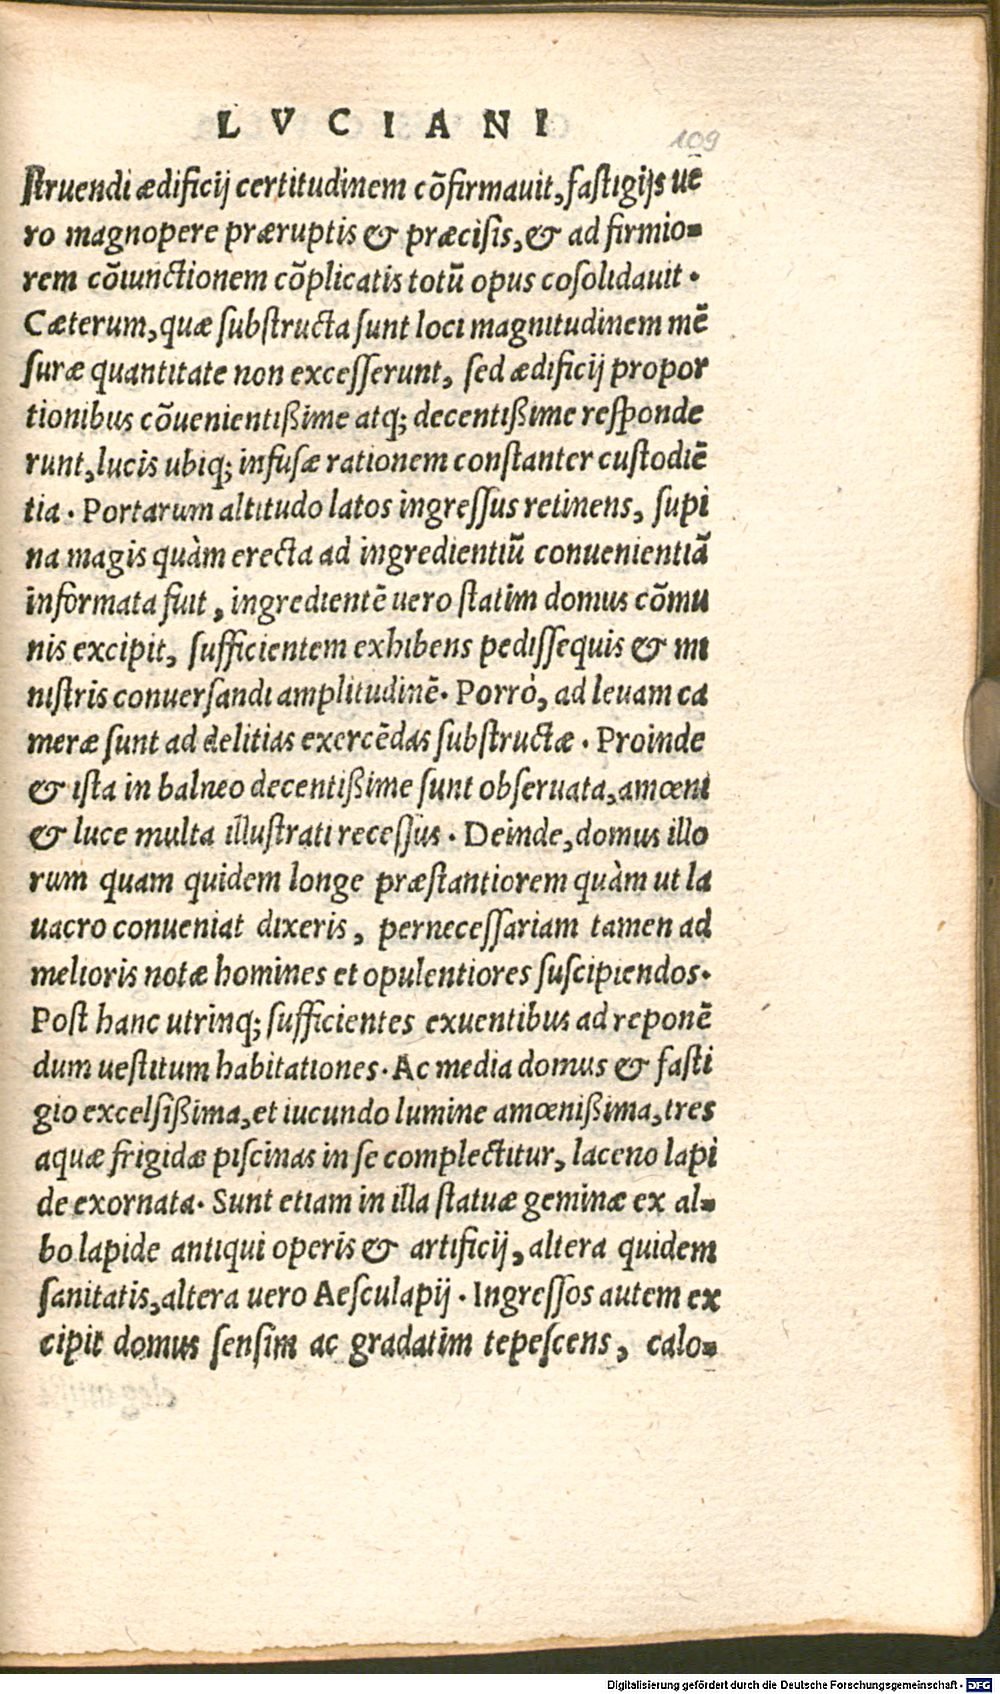 LVCIANI
109
ſtruendi ædificij certitudinem cõfirmauit, faſtigijs ue
ro magnopere præruptis & præcisis, & ad firmio-
rem cõiunctionem cõplicatis totũ opus coſolidauit.
Cæterum, quæ ſubſtructa ſunt loci magnitudinem mẽ
ſuræ quantitate non exceſſerunt, ſed ædificij propor
tionibus cõuenientißime atq; decentißime reſponde
runt, lucis ubiq; infuſæ rationem conſtanter cuſtodiẽ
tia. Portarum altitudo latos ingreſſus retinens, ſupi
na magis quàm erecta ad ingredientiũ conuenientiã
informata fuit, ingredientẽ uero ſtatim domus cõmu
nis excipit, ſufficientem exhibens pediſſequis & mi
niſtris conuerſandi amplitudinẽ. Porrò, ad leuam ca
meræ ſunt ad delitias exercẽdas ſubſtructæ. Proinde
& iſta in balneo decentißime ſunt obſeruata, amœni
& luce multa illuſtrati receſſus. Deinde, domus illo
rum quam quidem longe præſtantiorem quàm ut la
uacro conueniat dixeris, perneceſſariam tamen ad
melioris notæ homines et opulentiores ſuſcipiendos.
Poſt hanc utrinq; ſufficientes exuentibus ad reponẽ
dum ueſtitum habitationes. Ac media domus & faſti
gio excelſißima, et iucundo lumine amœnißima, tres
aquæ frigidæ piſcinas in ſe complectitur, laceno lapi
de exornata. Sunt etiam in illa ſtatuæ geminæ ex al-
bo lapide antiqui operis & artificij, altera quidem
ſanitatis, altera uero Aeſculapij. Ingreſſos autem ex
cipit domus ſenſim ac gradatim tepeſcens, calo-
Digitalisierung gefördert durch die Deutsche Forschungsgemeinschaft - DFG